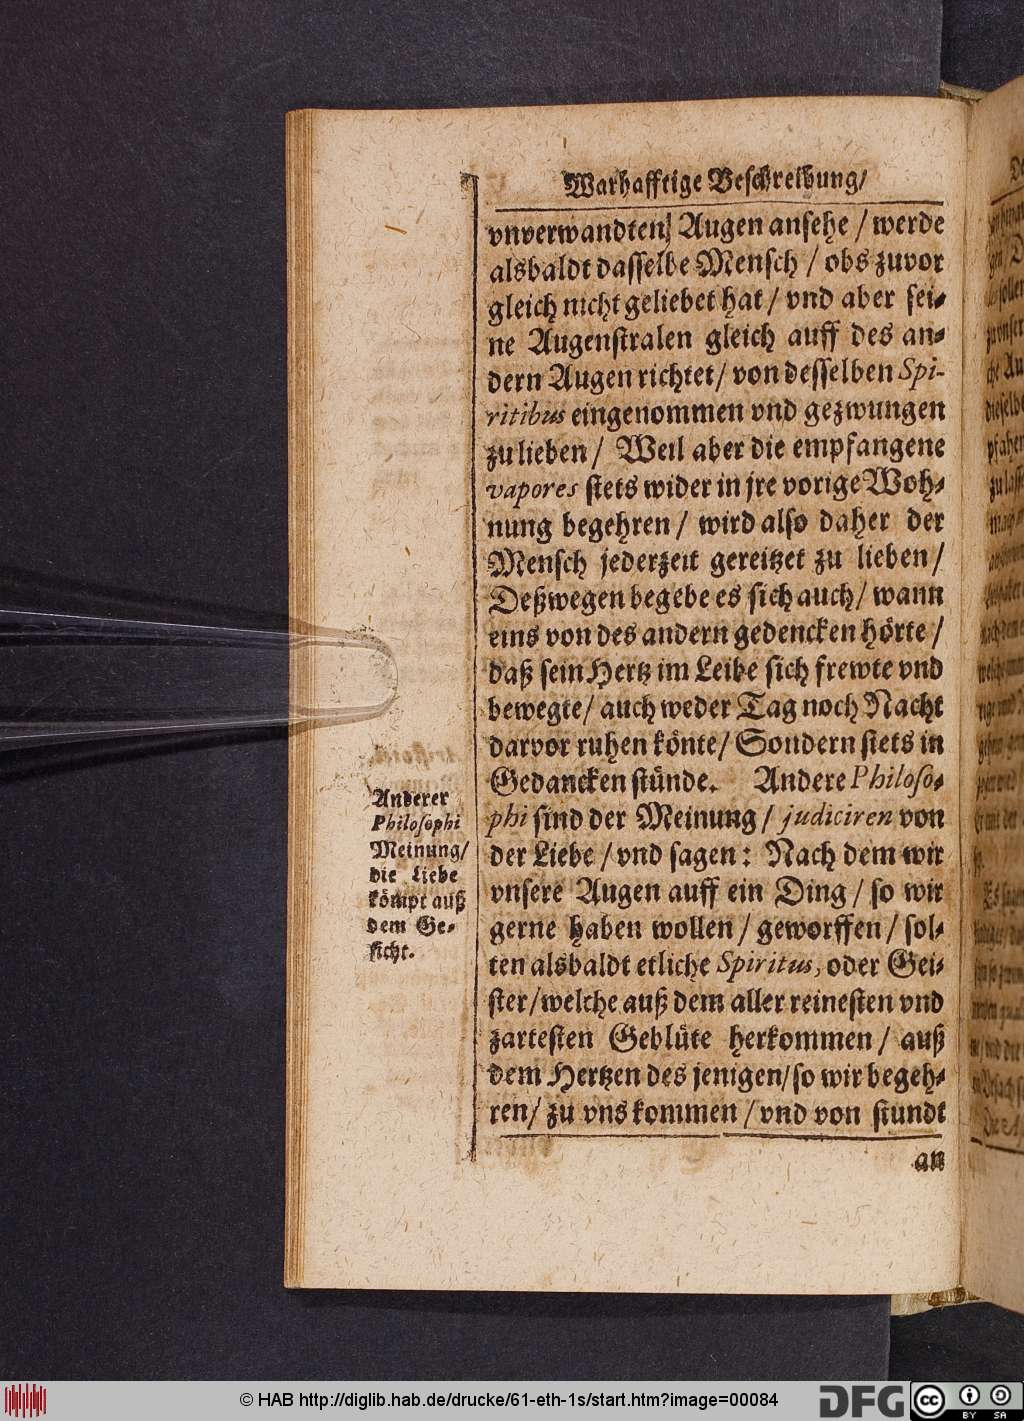 Warhafftige Beschreibung/
vnverwandten Augen ansehe / werde
alsbaldt dasselbe Mensch / obs zuvor
gleich nicht geliebet hat / vnd aber sei-
ne Augenstralen gleich auff des an-
dern Augen richtet / von desselben Spi-
ritibus eingenommen vnd gezwungen
zu lieben / Weil aber die empfangene
vapores stets wider in jre vorige Woh-
nung begehren / wird also daher der
Mensch jederzeit gereitzet zu lieben /
Deßwegen begebe es sich auch / wann
eins von des andern gedencken hörte /
daß sein Hertz im Leibe sich frewte vnd
bewegte / auch weder Tag noch Nacht
darvor ruhen könte / Sondern stets in
Gedancken stünde. Andere Philoso-
phi sind der Meinung / judiciren von
der Liebe / vnd sagen: Nach dem wir
vnsere Augen auff ein Ding / so wir
gerne haben wollen / geworffen / sol-
ten alsbaldt etliche Spiritus, oder Gei-
ster / welche auß dem aller reinesten vnd
zartesten Geblüte herkommen / auß
dem Hertzen des jenigen / so wir begeh-
ren / zu vns kommen / vnd von stundt
an
Anderer
Philosophi
Meinung/
die Liebe
kömpt auß
dem Ge-
sicht.
© HAB http://diglib.hab.de/drucke/61-eth-1s/start.htm?image=00084
DFG
cc
BY SA